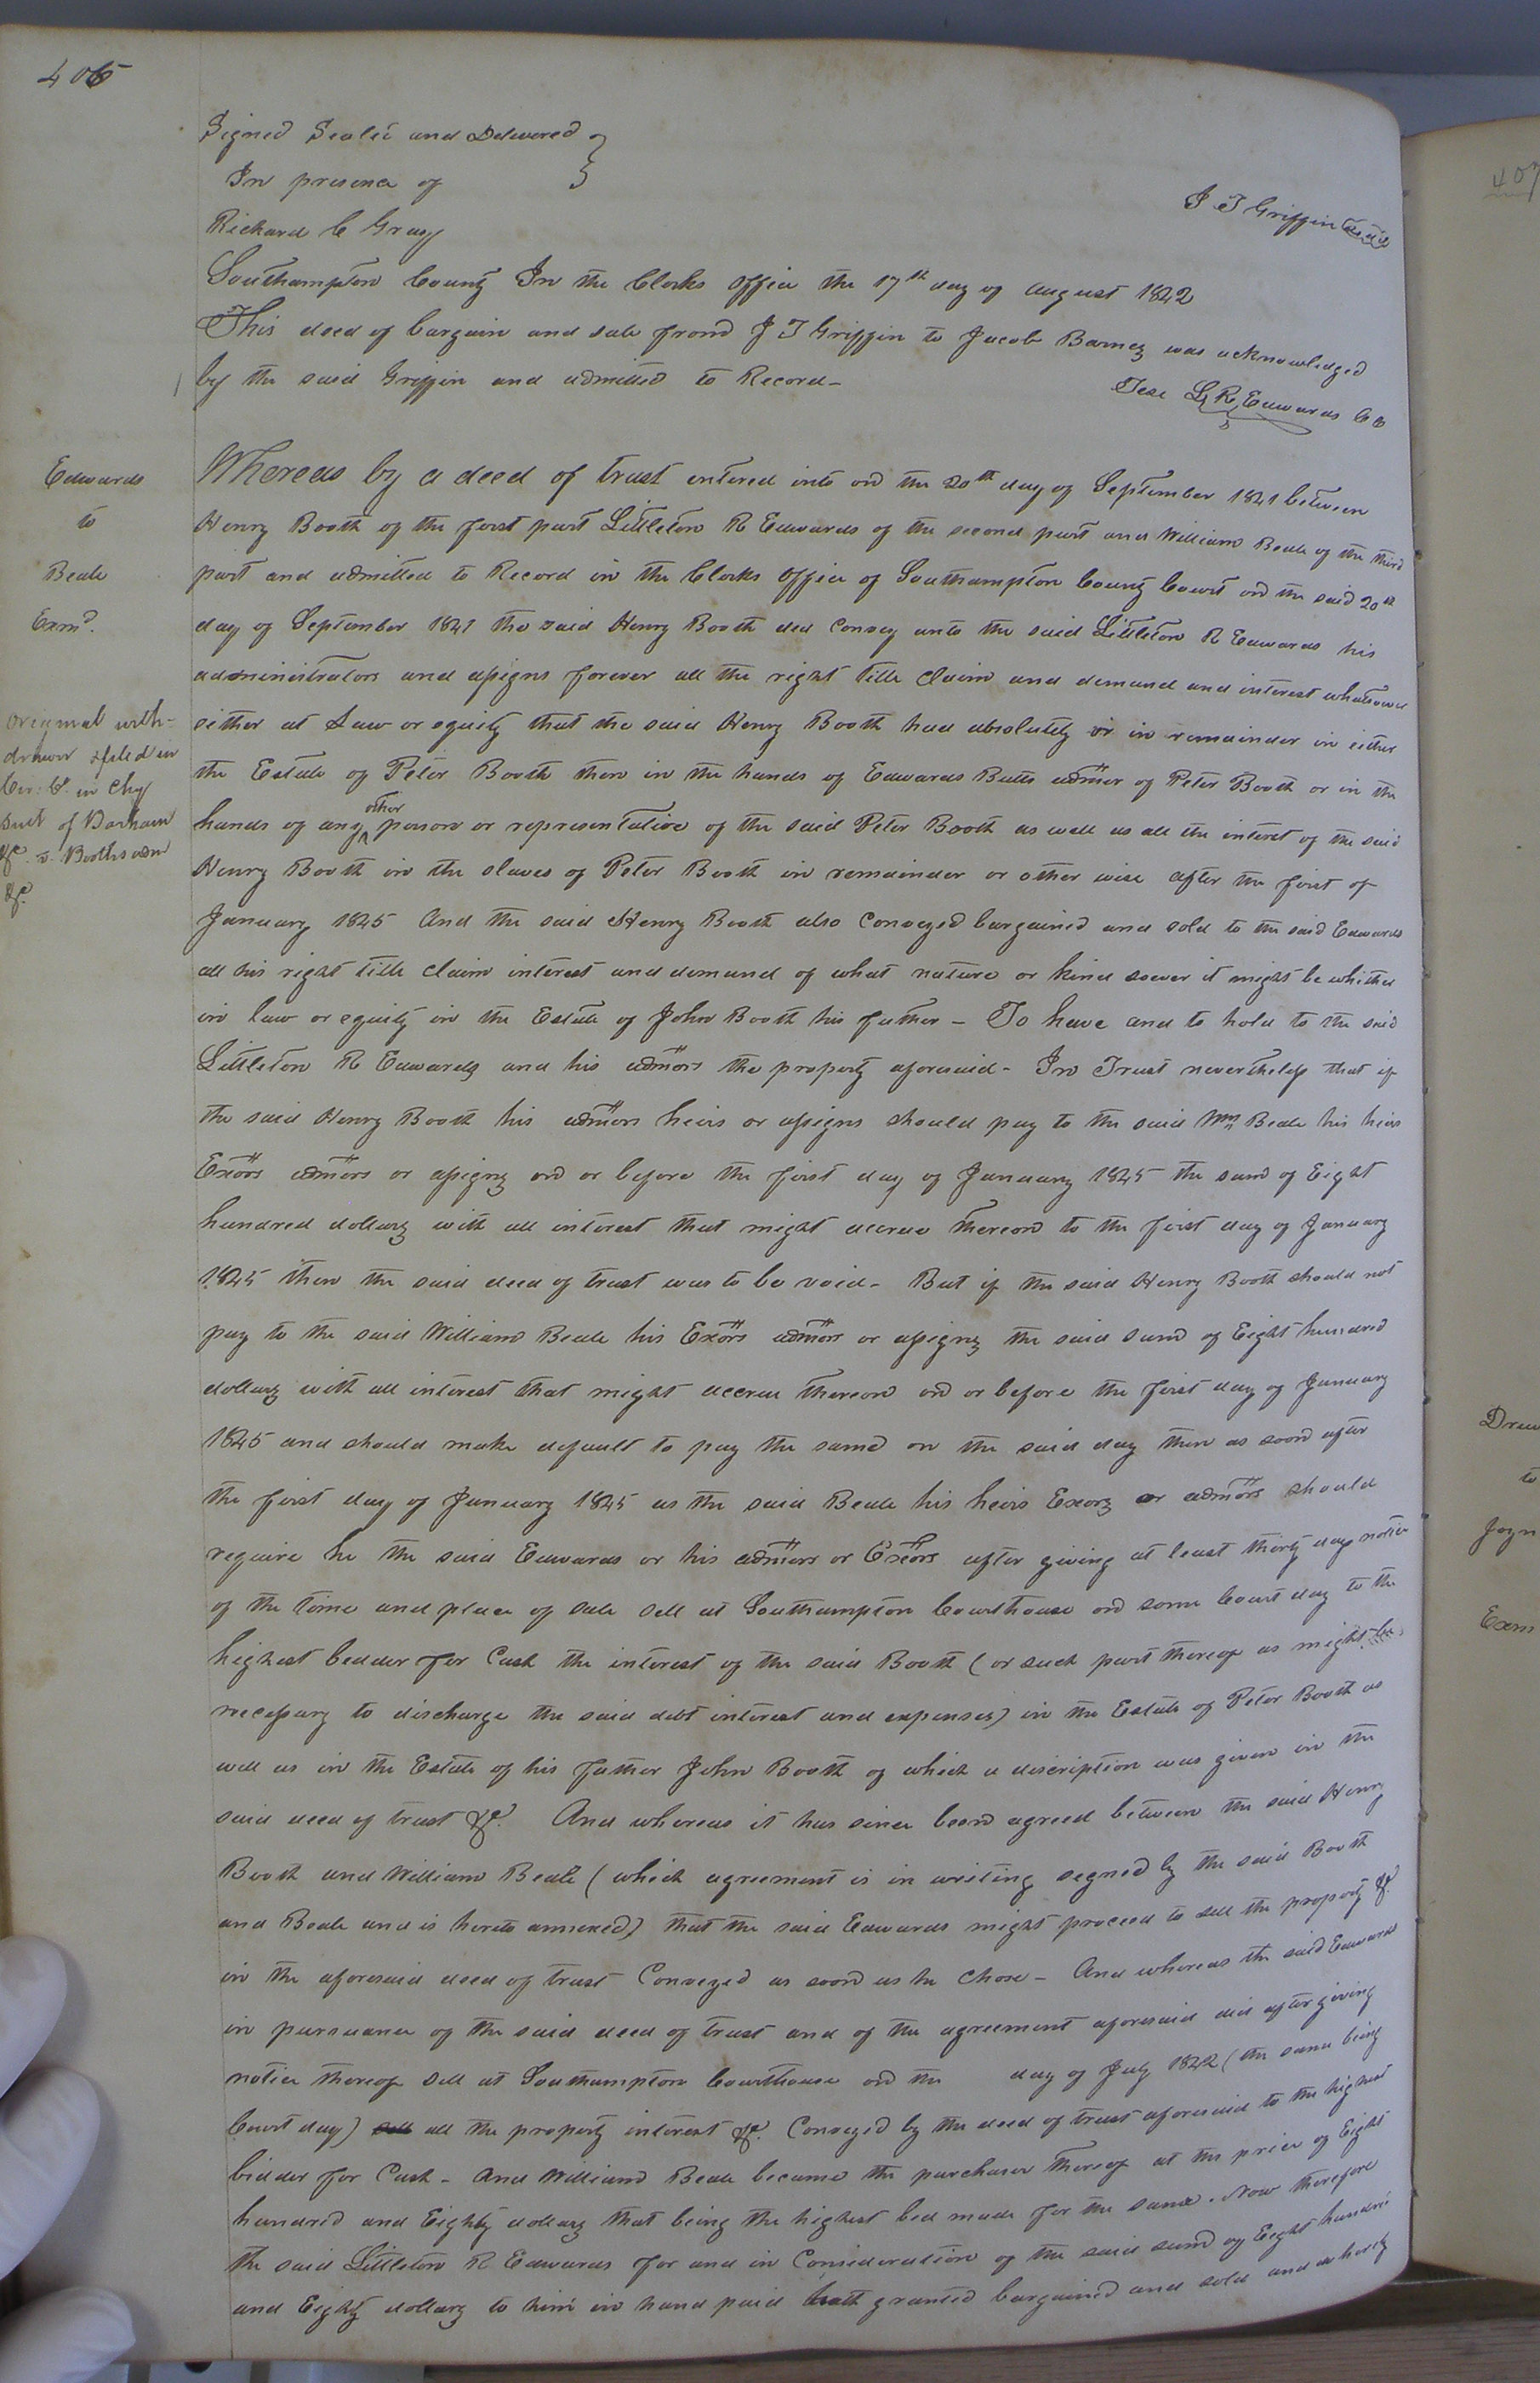 406
Signed Sealed and Delivered
In presence of
Richard C Gray
J T Griffin Seal
Southampton County In the Clerks office the 17th day of August 1842
This deed of bargain and sale from J T Griffin to Jacob Barnes was acknowledged
by the said Griffin and admitted to Record -
Test L R Edwards CC
Edwards
to
Beale
Exmd.
Original with-
drawn & filed in
Cir: Ct. in Chy
Suit of Barham
&c. v. Booths adm
&c.
Whereas by a deed of trust entered into on the 20th day of September 1841 between
Henry Booth of the first part Littleton R Edwards of the second part and William Beale of the third
part and admitted to Record in the Clerks office of Southampton County Court on the said 20th
day of September 1841 the said Henry Booth did convey unto the said Littleton R Edwards his
administrators and assigns forever all the right title claim and demand and interest whatsoever
either at Law or equity that the said Henry Booth had absolutely or in remainder in either
the Estate of Peter Booth then in the hands of Edwards Butts admor of Peter Booth or in the
hands of any other person or representative of the said Peter Booth as well as all the interest of the said
Henry Booth in the slaves of Peter Booth in remainder or other wise after the first of
January 1845 And the said Henry Booth also conveyed bargained and sold to the said Edwards
all his right title claim interest and demand of what nature or kind soever it might be whether
in law or equity in the Estate of John Booth his father - To have and to hold to the said
Littleton R Edwards and his admors the property aforesaid - In Trust nevertheless that if
the said Henry Booth his admors heirs or assigns should pay to the said Wm Beale his heirs
Exors admors or assigns on or before the first day of January 1845 the sum of Eight
hundred dollars with all interest that might accrue thereon to the first day of January
1845 then the said deed of trust was to be void - But if the said Henry Booth should not
pay to the said William Beale his Exors admors or assigns the said sum of Eight hundred
dollars with all interest that might accrue thereon on or before the first day of January
1845 and should make default to pay the same on the said day then as soon after
the first day of January 1845 as the said Beale his heirs Exors or admors should
require he the said Edwards or his admors or Exors after giving at least thirty days notice
of the time and place of sale sell at Southampton Courthouse on some Court day to the
highest bedder for Cash the interest of the said Booth (or such part thereof as might be
necessary to discharge the said debt interest and expenses) in the Estate of Peter Booth as
well as in the Estate of his father John Booth of which a discription was given in the
said deed of trust &c. And whereas it has since been agreed between the said Henry
Booth and William Beale (which agreement is in writing segned by the said Booth
and Beale and is hereto annexed) that the said Edwards might proceed to sell the property &c.
in the aforesaid deed of trust Conveyed as soon as he chose - And whereas the said Edwards
in pursuance of the said deed of trust and of the agreement aforesaid did after giving
notice thereof sell at Southampton Courthouse on the day of July 1842 (the same being
Court day) all the property interest &c. Conveyed by the deed of trust aforesaid to the highest
bidder for Cash - And William Beale became the purchaser thereof at the price of Eight
hundred and Eighty dollars that being the highest bed made for the same. Now therefore
the said Littleton R Edwards for and in Consideration of the said sum of Eight hundred
and Eighty dollars to him in hand paid hath granted bargained and sold and do hereby
407
Drew
to
Joyn
Exm